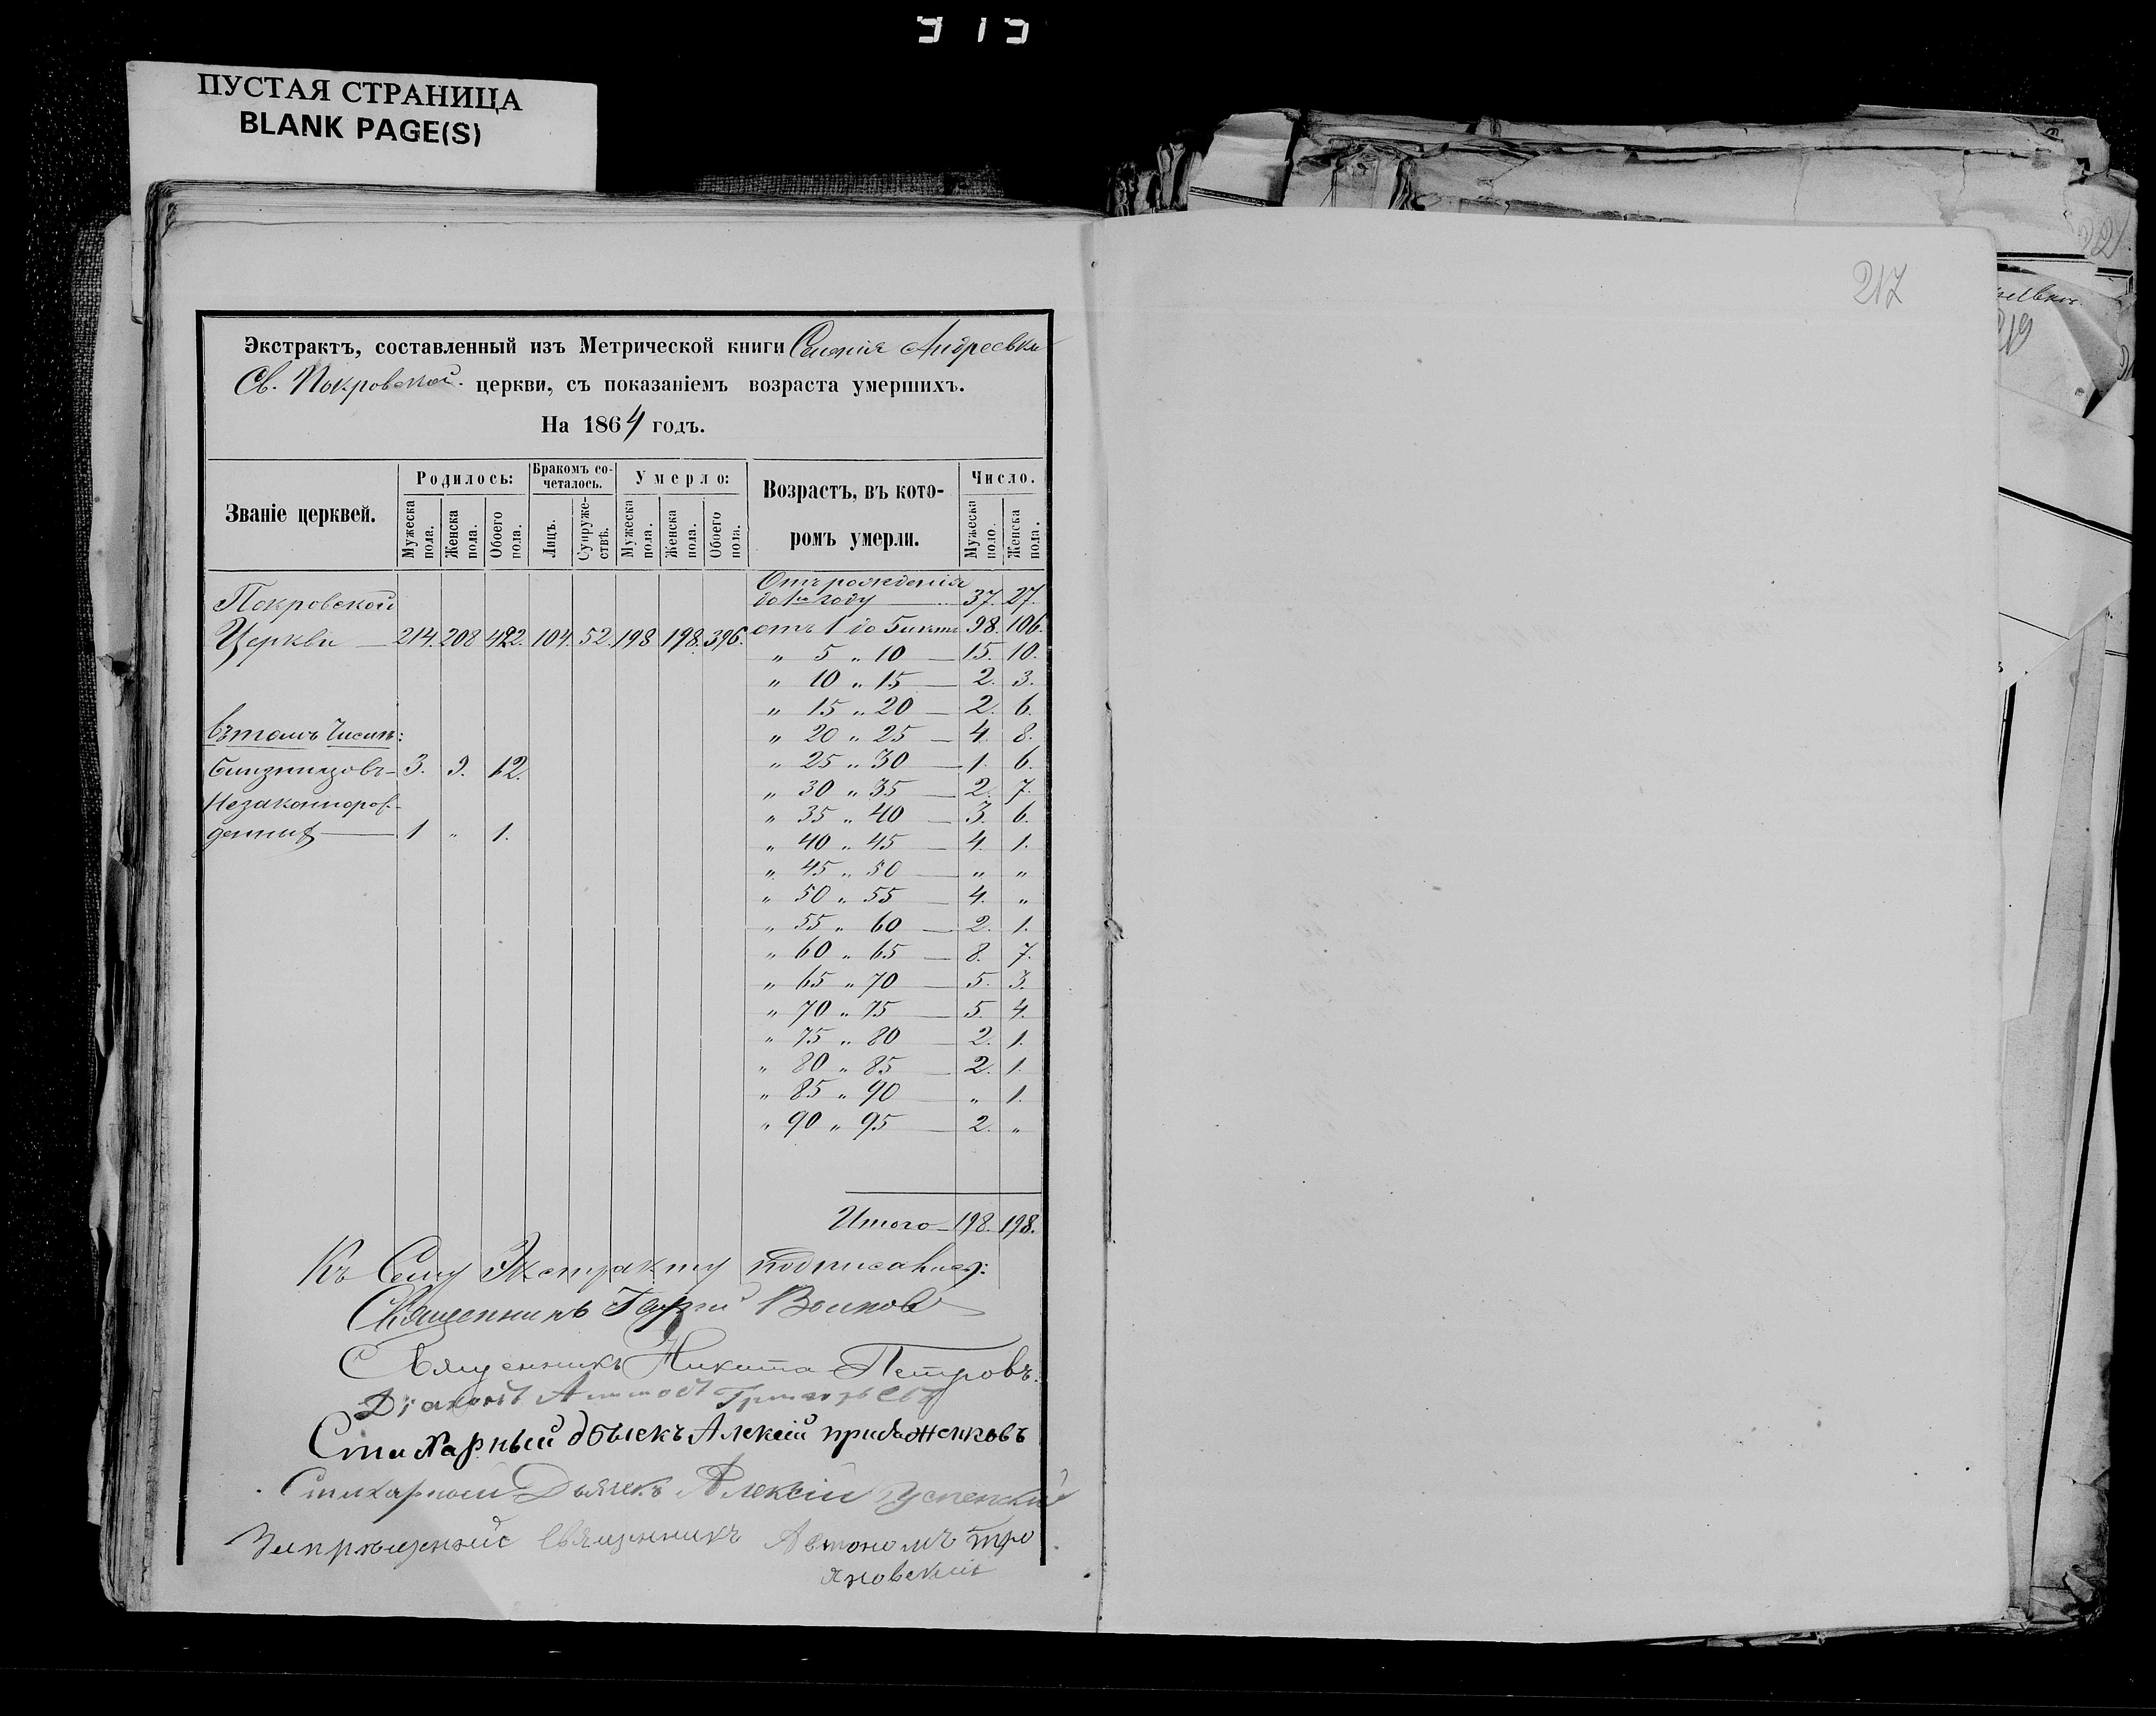 ПУСТАЯ СТРАНИЦА
BLANK PAGE(S)
217
219
Экстрактъ, составленный изъ Метрической книги Селенія Андреевки
Св. Покровской церкви, съ показаніемъ возраста умершихъ.
На 1864 годъ.
Званіе церквей. Родилось: Бракомъ со-четалось. Умерло: Возрастъ, въ кото-ромъ умерли. Число.
Мужеска пола. Женска пола. Обоего пола. Лицъ. Супруже-ствъ. Мужеска пола. Женска пола. Обоего пола. Мужеска поло. Женска пола.
Отъ рожденія
Покровской до 1го году 37. 27.
Церкви 214. 208 422. 104. 52. 198 198. 396. отъ 1 до 5 лѣтъ 98. 106.
" 5 " 10 15. 10.
" 10 " 15 2. 3.
" 15 " 20 2. 6.
Въ томъ числѣ: " 20 " 25 4. 8.
близнецовъ 3. 9. 12. " 25 " 30 1. 6.
Незаконнорож- " 30 " 35 2. 7.
" 35 " 40 3. 6.
денныхъ 1 " 1. " 40 " 45 4. 1.
" 45 " 50 " "
" 50 " 55 4. "
" 55 " 60 2. 1.
" 60 " 65 8. 7.
" 65 " 70 5. 3.
" 70 " 75 5. 4.
" 75 " 80 2. 1.
" 80 " 85 2. 1.
" 85 " 90 " 1.
" 90 " 95 2. "
Итого 198. 198.
Къ Сему Экстракту подписались:
Священникъ Воиновъ
Священникъ Никита Петровъ.
Діаконъ
Стихарный Алексій
Стихарный Дьячекъ Алексій Успенскій
священникъ Автономъ Тро
яновскій